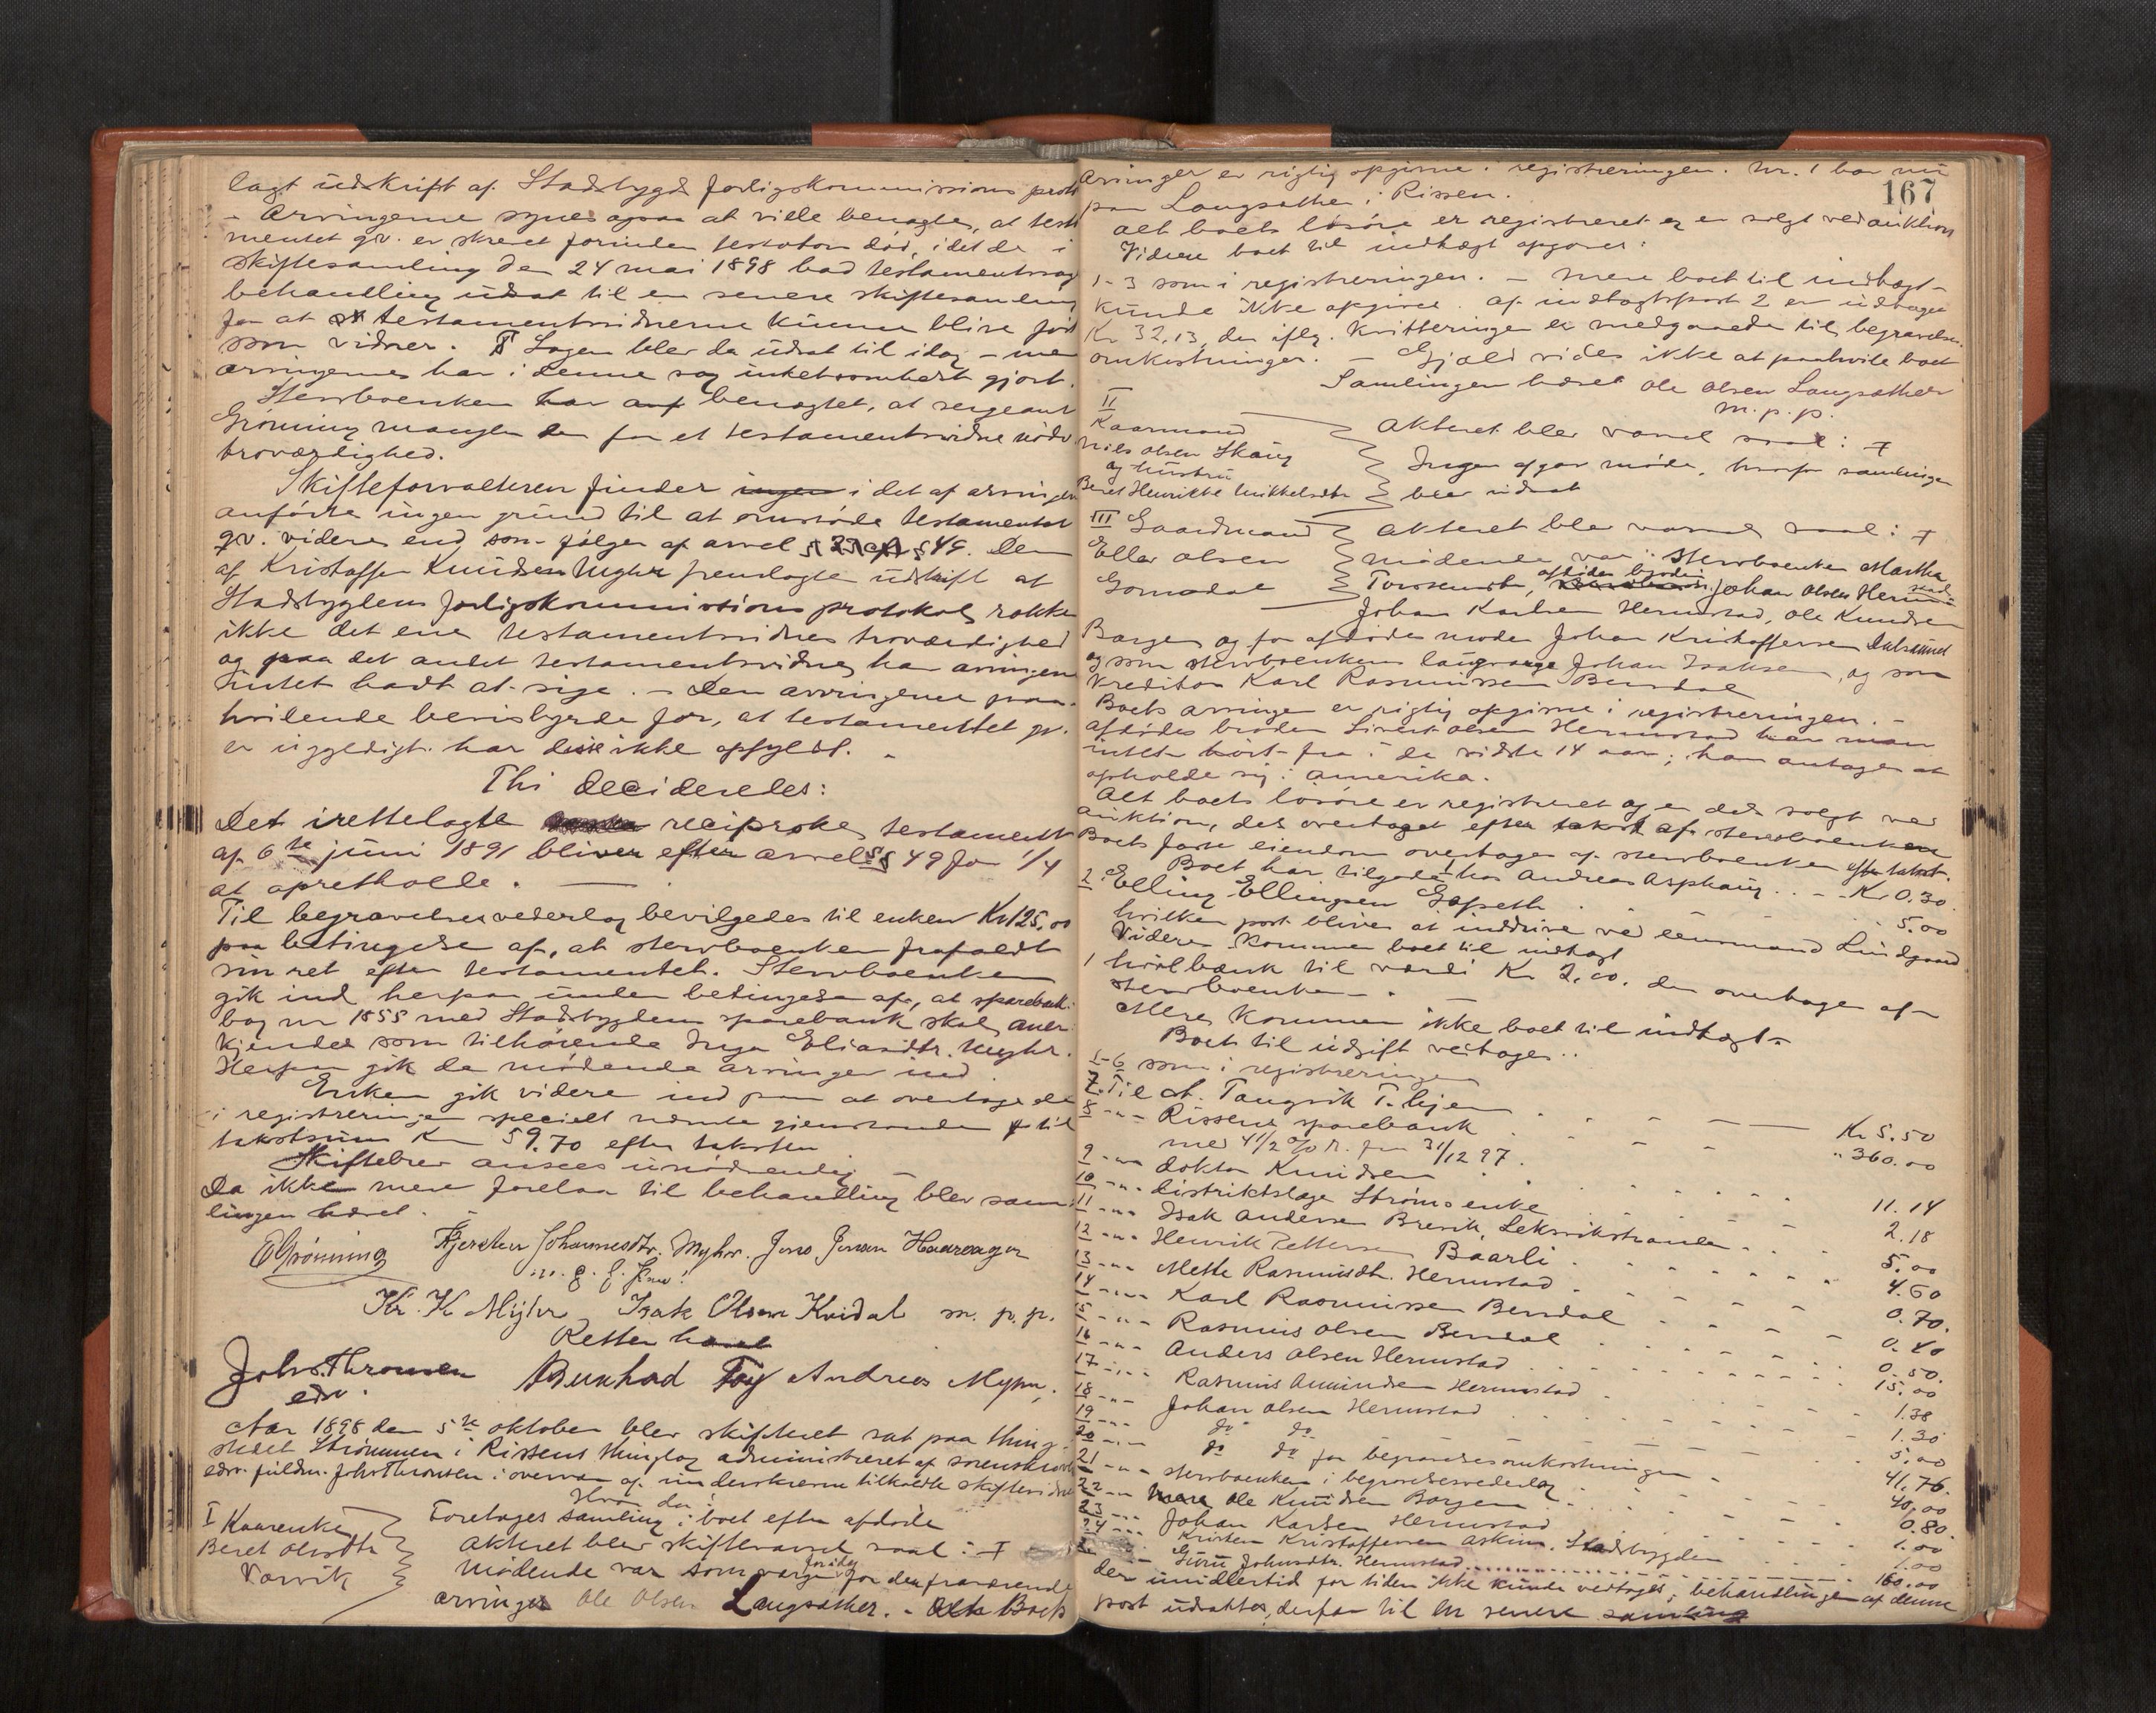 lagt udskrift af Stadsbygds forligskommissions prot
- Arvingerne synes ogsaa at ville benægte, at testa
mentet qv. er skrevet forinden testators død, idet de i
skiftesamling den 24 mai 1898 bad testamentssag
behandling udsat til en senere skiftesamling
for at testamentsvidnerne kunne blive ført
som vidner. Sagen blev da udsat til idag - men
arvingerne har i denne sag intetsomhelst gjort.
Stervboenken har benægtet, at sergeant
Grønning mangler den for et testamentsvidne nødv
troværdighed.
Skifteforvalteren finder ingen i det af arvingen
anførte ingen grund til at omstøde testamentet
qv. videre end som følger af arvel § 49. Den
af Kristoffer Knudsen Myhr fremlagte udskrift af
Stadsbygdens forligskommissions protokol rokker
ikke det ene testamentsvidnes troværdighed
og paa det andet testamentsvidne har arvingerne
intet havt at sige. - Den arvingerne paa-
hvilende bevisbyrde for, at testamentet qv.
er ugyldigt har disse ikke opfyldt. -
Thi decideredes:
Det irettelagte reciproke testament
af 6te juni 1891 bliver efter arvel §§ 49 for 1/4
at opretholde. -
Til begravelsesvederlag bevilgedes til enken Kr 125,00
paa betingelse af, at stervboenken frafaldt
sin ret efter testamentet. Stervboenken
gik ind herpaa under betingelse af, at sparebank-
bog nr 1855 med Stadsbygdens sparebank skal aner-
kjendes som tilhørende Inga Eliasdtr. Myhr.
Herpaa gik de mødende arvinger ind.
Enken gik videre ind paa at overtage de
i registreringen specielt nævnte gjenstande til
takstsum Kr 59.70 efter taksten
Skiftebrev ansees unødvendig -
Da ikke mere forelaa til behandling blev sam-
lingen hævet.
EGrønning Kjersten Johannesdtr. Myhr. Jens Jensen Haarvager
Kr. K Myhr Isak Olsen Kvidal m. p. p.
Retten hævet
Johs. Thronsen Bernhad Foy Andreas Myhr.
edsv.
Aar 1898 den 5te oktober blev skifteret sat paa thing-
stedet Strømmen i Rissens thinglag administreret af sorenskriver
edsv. fuldm. Johs Thronsen i overvær af underskrevne tilkaldte skiftevidner
Hvor da:
I Kaarenke
Beret Olsdtr
Vorvik
Foretoges samling i boet efter afdøde
Akteret blev skiftevarsel saal: I
Mødende var som værge for de fraværende
arvinger Ole Olsen Langsæther. - Boets
167
Arvinger er rigtig opgivne i registreringen. Nr. 1 bor nu
paa Langsæther i Rissen.
Alt boets løsøre er registreret og er solgt ved auktion
Videre boet til indtægt opgaves:
1-3 som i registreringen. - Mere boet til indtægt
kunde ikke opgives. Af indtægtspost 2 er udtaget
Kr 32,13, der iflg. kvitteringer er medgaaede til begravelses-
omkostninger. - Gjæld vides ikke at paahvile boet
Samlingen hævet Ole Olsen Langsæther
m. p. p.
II
Kaarmand
Nils Olsen Skaug
og hustru
Beret Henrikke Mikkelsdtr
Akteret blev varsel saal: I
Ingen afgav møde, hvorfor samlingen
blev udsat
III Gaardmand
Eller Olsen
Gomodal
Akteret blev varsel saal: I
Mødende var: Stervboenken Martha
Torsensdtr, afdødes brødre Johan Olsen Hermstad
Johan Karlsen Hermstad, Ole Knudsen
Borgen og for afdødes moder Johan Kristoffersen Dalsaunet
og som stervboenkens laugværge Johan Isaksen, og som
kreditor Karl Rasmussen Bensdal
Boets arvinger er rigtig opgivne i registreringen. -
afdødes broder Sivert Olsen Hermstad har man
intet hørt fra i de sidste 14 aar; han antages at
opholde sig i Amerika.
Alt boets løsøre er registreret og er dels solgt ved
auktion, dels overtaget efter takst af stervboenken
Boets faste eiendom overtages af stervboenken efter takst.
Boet har tilgode hos Andreas Asphaug . . - Kr 0.30
2 Elling Ellingsen Gapseth . . 5.00
hvilken post bliver at inddrive ved lensmand Lindgaard
Videre kommer boet til indtægt
1 høvlbænk til værdi Kr 2.00. der overtages af
stervboenken. -
Mere kommer ikke boet til indtægt
Boet til udgift vedtages..
1-6 som i registreringen
7. Til A. Tangvik T.hjem . . Kr 5.50
8 -"- Rissens sparebank . . " 360.00
med 4 1/2 % R. fra 31/12 97.
9 -"- doktor Knudsen . . 11.14
10 -"- distriktslæge Strøms enke . . 2.18
11 -"- Isak Andersen Brevik, Leksvikstranden . . 5.00
12 -"- Henrik Pettersen Baarli . . 4.60
13 -"- Mette Rasmusdtr. Hermstad . . 0.70.
14 -"- Karl Rasmussen Bensdal . . 0.40
15 -"- Rasmus Olsen Bensdal . . 0.50.
16 -"- Anders Olsen Hermstad . . 15.00
17 -"- Rasmus Amundsen Hermstad . . 1.38
18 -"- Johan Olsen Hermstad . . 1.30
19 -"- do do . . 5.00
20 -"- do do for begravelsesomkostninger . . 41,76.
21 -"- stervboenken i begravelsesvederlag . . 40,00
22 -"- Ole Knudsen Borgen . . 0.80.
23 -"- Johan Karlsen Hermstad . . 1.00
24 -"- Kristen Kristoffersen Askim. Stadsbygden . . 1.00
Guru Johnsdtr. Hermstad . . 160.00
der imidlertid for tiden ikke kunde vedtages; behandlingen af denne
post udsattes, derfor til en senere samling